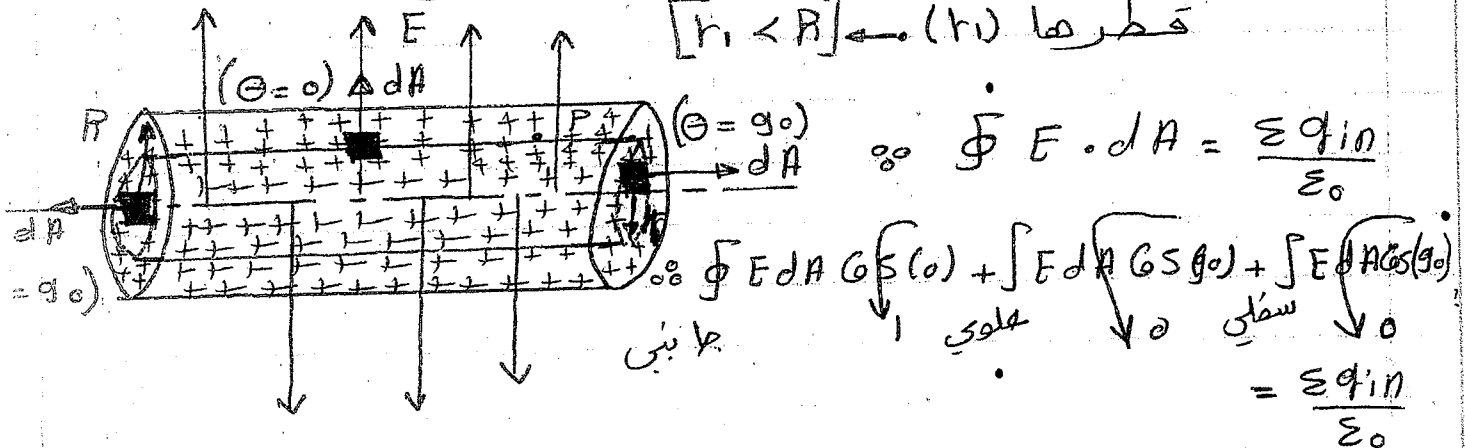 قطرها (r₁) ← [r₁ < R]
E
(θ = 0) dA
R
P
(θ = 90)
dA
dA
= 90)
r₁
∵ ∮ E . dA = Σ qin / ε₀
∴ ∮ E dA Cos(0) + ∫ E dA Cos(90) + ∫ E dA Cos(90)
جانبي 1 علوي 0 سفلي 0
= Σ qin / ε₀